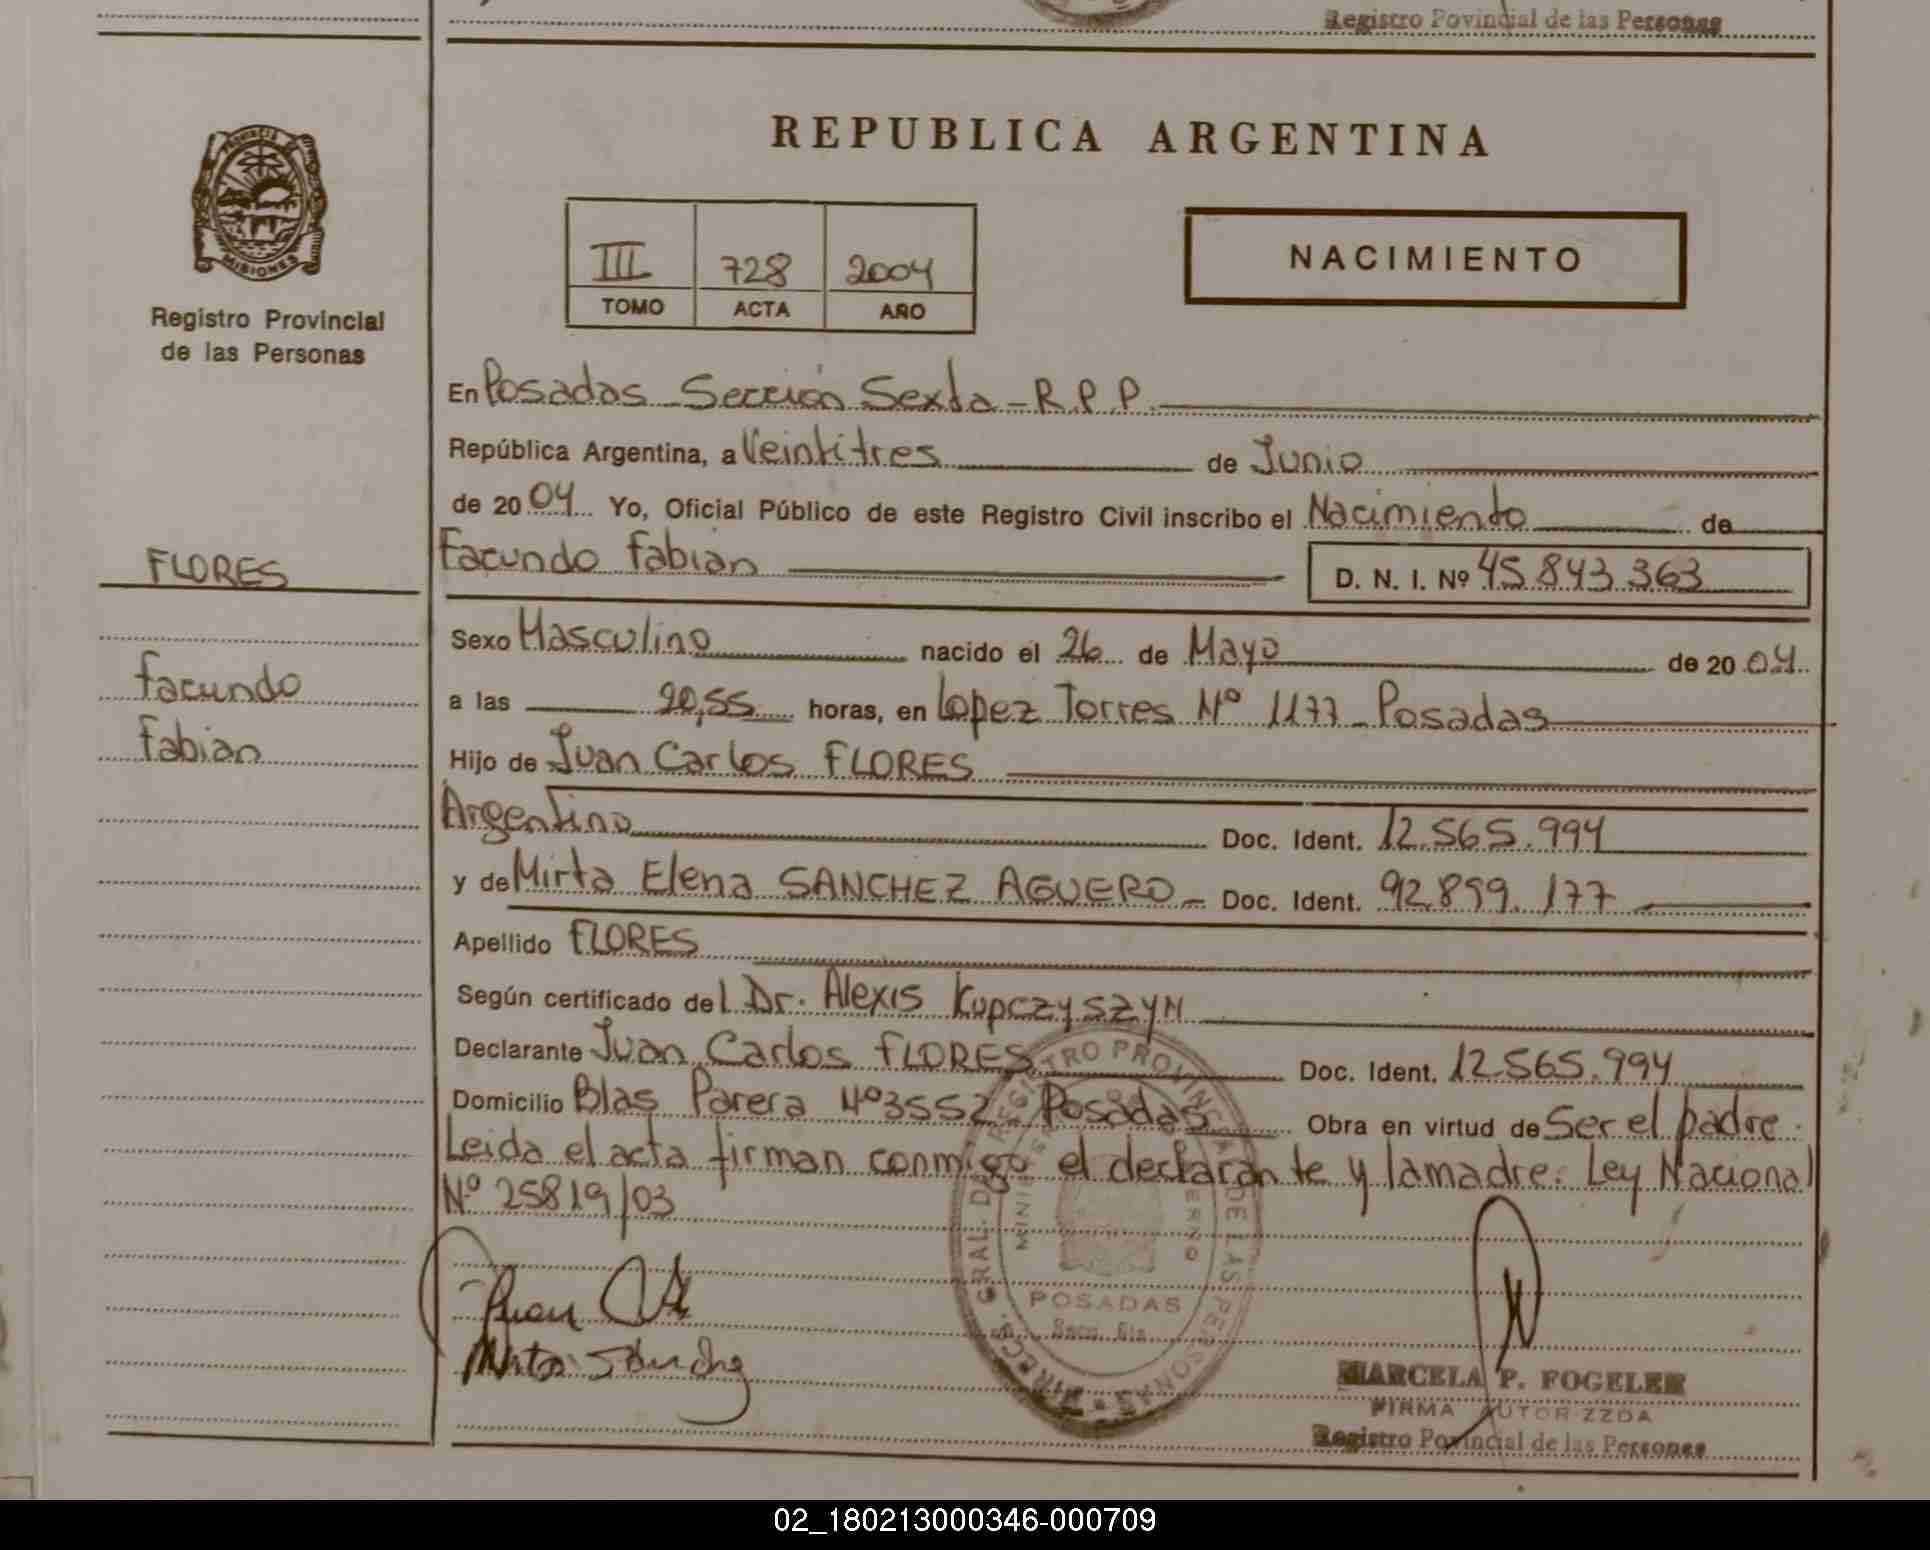 Registro Povincial de las Personas
PROVINCIA
MISIONES
Registro Provincial
de las Personas
REPUBLICA ARGENTINA
III 728 2004
TOMO ACTA AÑO
NACIMIENTO
En Posadas - Sección Sexta - R.P.P.
República Argentina, a Veintitres de Junio
de 2004 Yo, Oficial Público de este Registro Civil inscribo el Nacimiento de
FLORES
Facundo Fabian D. N. I. Nº 45.843.363
Sexo Masculino nacido el 26 de Mayo de 2004
Facundo
a las 20,55 horas, en Lopez Torres Nº 1177 - Posadas
Fabian
Hijo de Juan Carlos FLORES
Argentino Doc. Ident. 12.565.994
y de Mirta Elena SANCHEZ AGUERO - Doc. Ident. 92.899.177
Apellido FLORES
Según certificado del Dr. Alexis Kupczyszyn
Declarante Juan Carlos FLORES Doc. Ident. 12.565.994
Domicilio Blas Parera Nº 3552 Posadas Obra en virtud de Ser el padre.
Leida el acta firman conmigo el declarante y la madre. Ley Nacional
Nº 25819/03
DIREC. GRAL. DEL REGISTRO PROVINCIAL DE LAS PERSONAS
POSADAS
Juan
Mirta Sanchez
MARCELA P. FOGELER
FIRMA AUTORIZZDA
Registro Povincial de las Persones
02_180213000346-000709